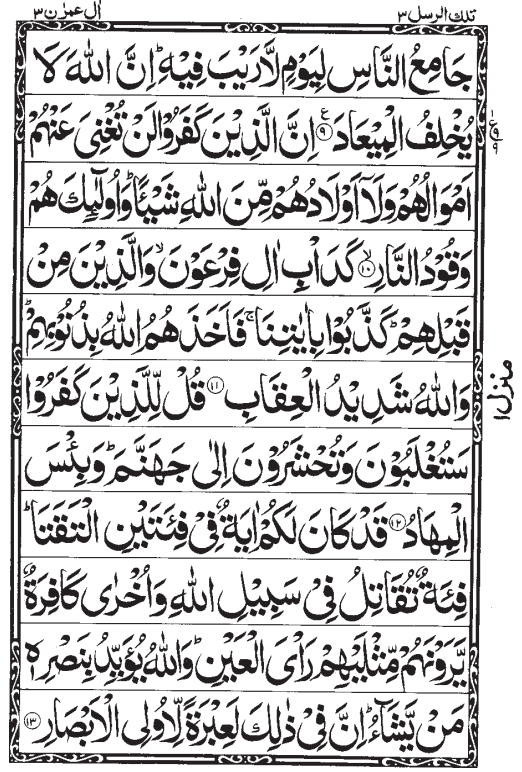 تلك الرسل ٣
اٰل عمرٰن ٣
جَامِعُ النَّاسِ لِيَوْمٍ لَّا رَيْبَ فِيْهِ ؕ اِنَّ اللّٰهَ لَا
يُخْلِفُ الْمِيْعَادَ ۟ ﴿٩﴾ ع اِنَّ الَّذِيْنَ كَفَرُوْا لَنْ تُغْنِيَ عَنْهُمْ
اَمْوَالُهُمْ وَلَاۤ اَوْلَادُهُمْ مِّنَ اللّٰهِ شَيْـًٔا ؕ وَاُولٰٓئِكَ هُمْ
وَقُوْدُ النَّارِ ۙ﴿١٠﴾ كَدَاْبِ اٰلِ فِرْعَوْنَ ۙ وَالَّذِيْنَ مِنْ
قَبْلِهِمْ ؕ كَذَّبُوْا بِاٰيٰتِنَا ۚ فَاَخَذَهُمُ اللّٰهُ بِذُنُوْبِهِمْ ؕ
وَاللّٰهُ شَدِيْدُ الْعِقَابِ ﴿١١﴾ قُلْ لِّلَّذِيْنَ كَفَرُوْا
سَتُغْلَبُوْنَ وَتُحْشَرُوْنَ اِلٰى جَهَنَّمَ ؕ وَبِئْسَ
الْمِهَادُ ﴿١٢﴾ قَدْ كَانَ لَكُمْ اٰيَةٌ فِيْ فِئَتَيْنِ الْتَقَتَا ؕ
فِئَةٌ تُقَاتِلُ فِيْ سَبِيْلِ اللّٰهِ وَاُخْرٰى كَافِرَةٌ
يَّرَوْنَهُمْ مِّثْلَيْهِمْ رَاْيَ الْعَيْنِ ؕ وَاللّٰهُ يُؤَيِّدُ بِنَصْرِهٖ
مَنْ يَّشَآءُ ؕ اِنَّ فِيْ ذٰلِكَ لَعِبْرَةً لِّاُولِي الْاَبْصَارِ ﴿١٣﴾
منزل ١